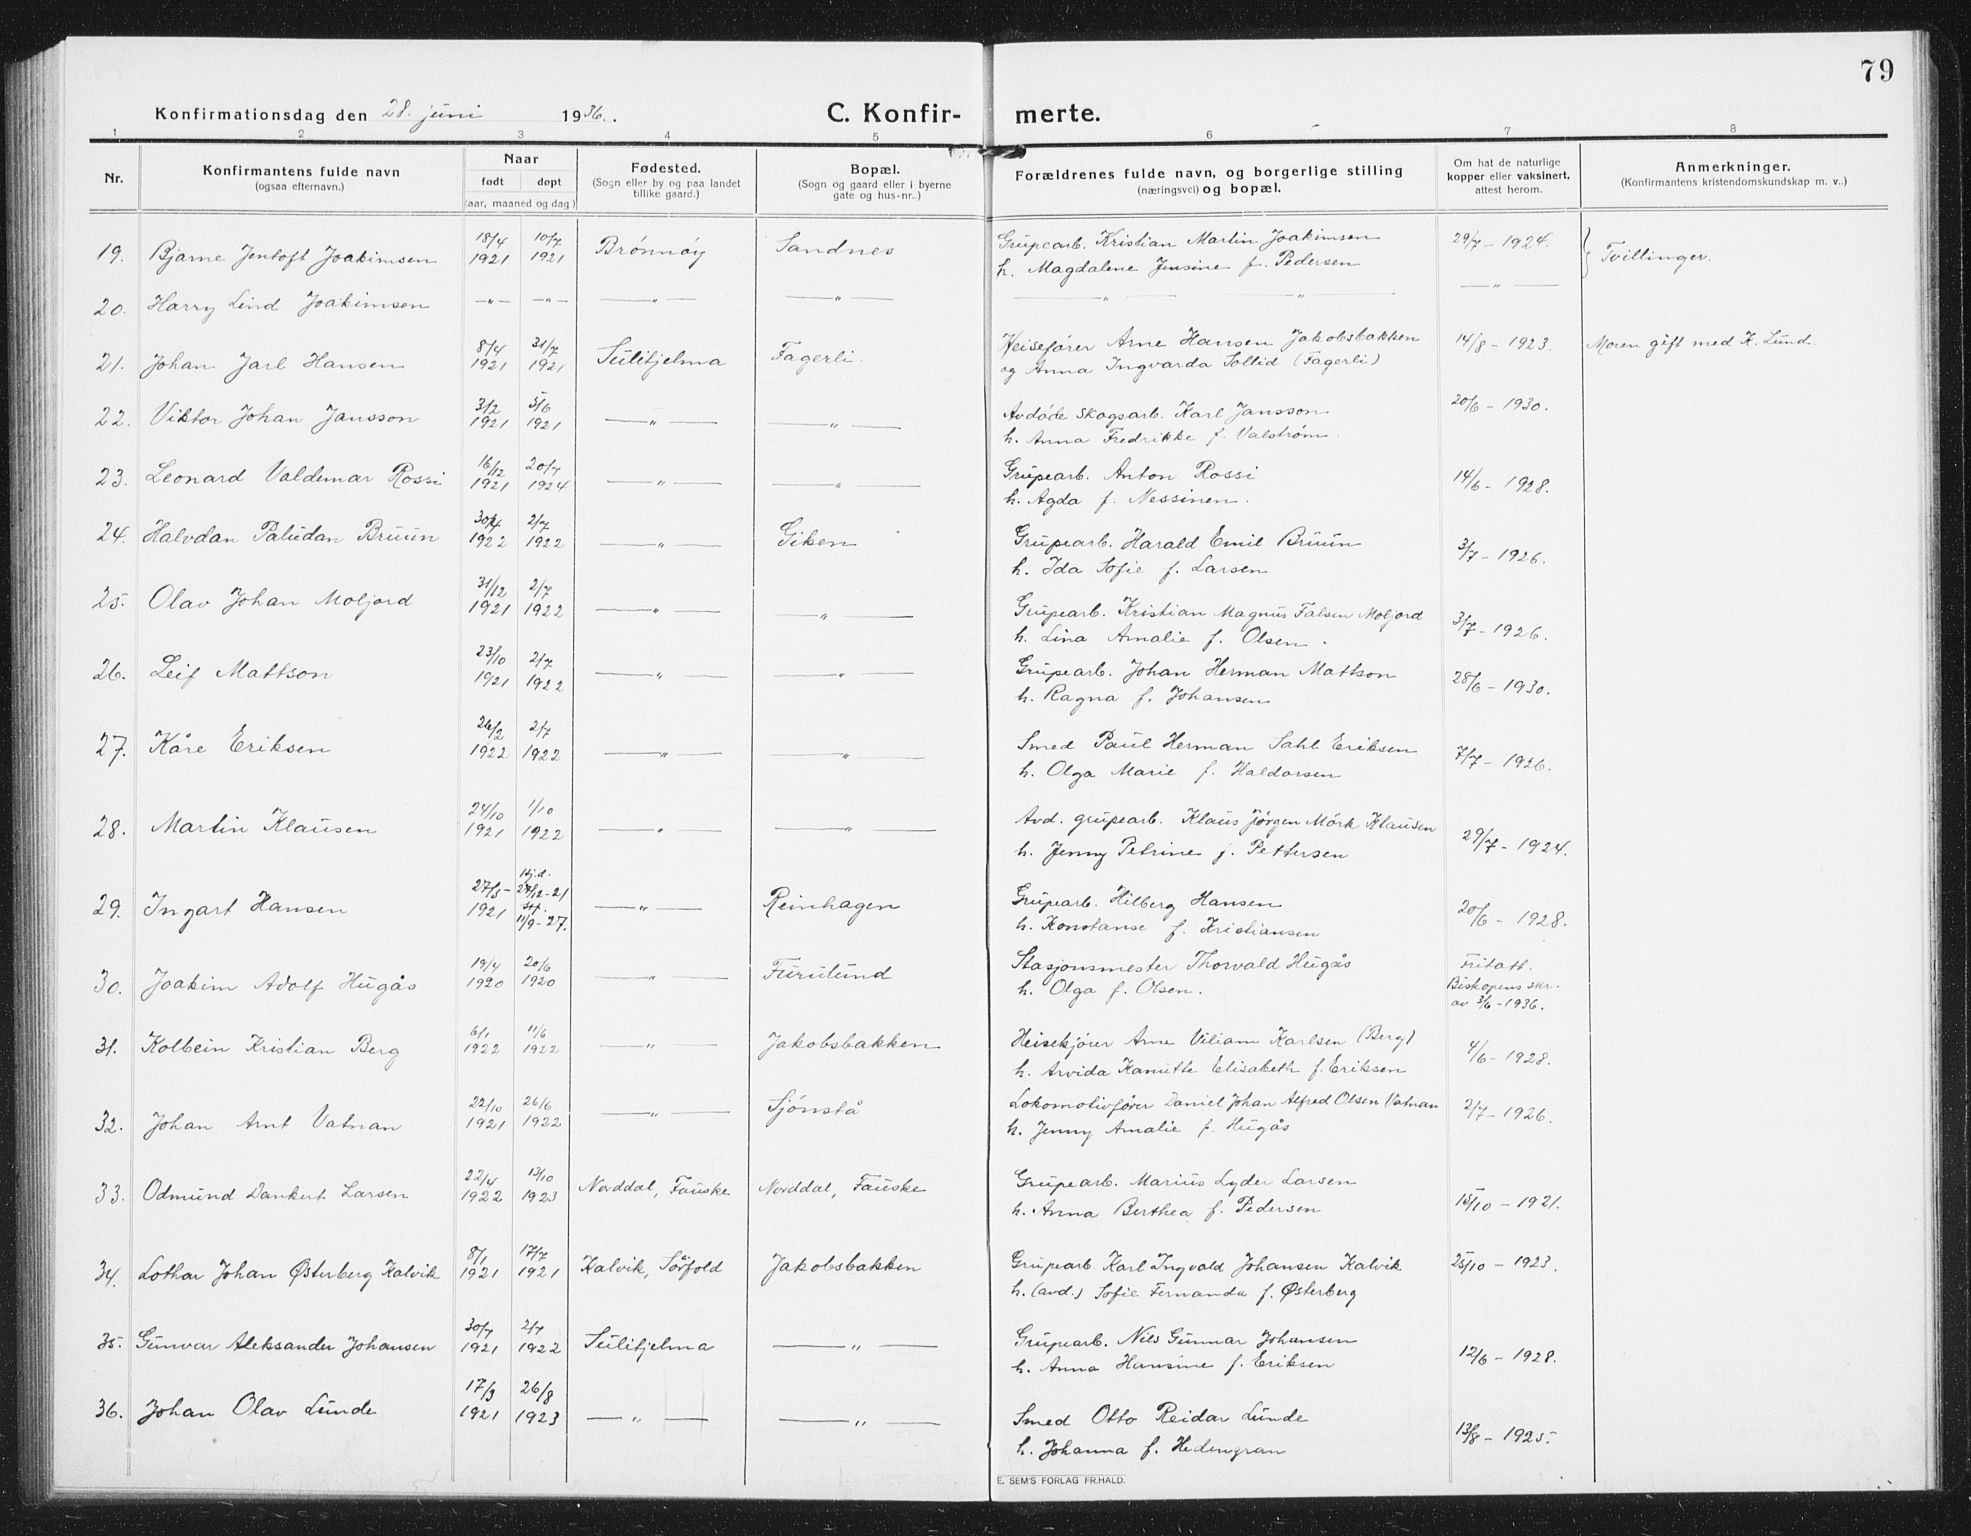 79
Konfirmationsdag den 28. juni 1936. C. Konfir- merte.
1 2 3 4 5 6 7 8
Nr. Konfirmantens fulde navn (ogsaa efternavn.) Naar født døpt (aar, maaned og dag) Fødested. (Sogn eller by og paa landet tillike gaard.) Bopæl. (Sogn og gaard eller i byerne gate og hus-nr..) Forældrenes fulde navn, og borgerlige stilling (næringsvei) og bopæl. Om hat de naturlige kopper eller vaksinert, attest herom. Anmerkninger. (Konfirmantens kristendomskundskap m. v..)
19. Bjarne Jentoft Joakimsen 18/4 1921 10/7 1921 Brønnøy Sandnes Grupearb. Kristian Martin Joakimsen 29/7 - 1924. Tvillinger.
h. Magdalene Jensine f. Pedersen
20. Harry Lind Joakimsen -„- -„- -„- -„- -„- -„- -„-
21. Johan Jarl Hansen 8/4 1921 31/7 1921 Sulitjelma Fagerli Heisefører Arne Hansen Jakobsbakken 14/8 - 1923. Moren gift med K. Lund
og Anna Ingvarda Sollid (Fagerli)
22. Viktor Johan Jansson 3/2 1921 5/6 1921 -„- -„- Avdøde skogsarb. Karl Jansson 20/6 - 1930.
h. Anna Fredrikke f. Valstrøm.
23. Leonard Valdemar Rossi 16/12 1921 20/7 1924 -„- -„- Grupearb. Anton Rossi 14/6 - 1928.
h. Agda f. Nessinen.
24. Halvdan Paludan Bruun 30/4 1922 2/7 1922 -„- Giken Grupearb. Harald Emil Bruun 3/7 - 1926.
h. Ida Sofie f. Larsen
25. Olav Johan Moljord 31/12 1921 2/7 1922 -„- -„- Grupearb. Kristian Magnus Falsen Moljord 3/7 - 1926.
h. Lina Amalie f. Olsen.
26. Leif Mattson 23/10 1921 2/7 1922 -„- -„- Grupearb. Johan Herman Mattson 28/6 - 1930.
h. Ragna f. Johansen
27. Kåre Eriksen 26/2 1922 2/7 1922 -„- -„- Smed Paul Herman Sahl Eriksen 7/7 - 1926.
h. Olga Marie f. Haldorsen
28. Martin Klausen 24/10 1921 1/10 1922 -„- -„- Avd. grupearb. Klaus Jørgen Mörk Klausen 29/7 - 1924.
h. Jenny Petrine f. Pettersen
29. Ingart Hansen 27/5 - 1921 Hj.d. 27/12 - 21 st. 11/9 - 27. -„- Reinhagen Grupearb. Hilberg Hansen 20/6 - 1928.
h. Konstanse f. Kristiansen
30. Joakim Adolf Hugås 19/4 1920 20/6 1920 -„- Furulund Stasjonsmester Thorvald Hugås Fritatt.
h. Olga f. Olsen. Biskopens skr. av 3/6 - 1936.
31. Kolbein Kristian Berg 6/1 1922 11/6 1922 -„- Jakobsbakken Heisekjører Arne Viliam Karlsen (Berg) 4/6 - 1928.
h. Arvida Kanutte Elisabeth f. Eriksen
32. Johan Arnt Vatnan 22/10 1921 26/6 1922 -„- Sjönstå Lokomotivfører Daniel Johan Alfred Olsen Vatnan 2/7 - 1926.
h. Jenny Amalie f. Hugås
33. Odmund Dankert Larsen 22/4 1922 13/10 1923 Norddal, Fauske Norddal, Fauske Grupearb. Marius Lyder Larsen 15/10 - 1921.
h. Anna Berthea f. Pedersen
34. Lothar Johan Østerberg Kalvik 8/1 1921 17/7 1921 Kalvik, Sörfold Jakobsbakken Grupearb. Karl Ingvald Johansen Kalvik 25/10 - 1923.
h. (avd.) Sofie Fernanda f. Østerberg
35. Gunvar Aleksander Johansen 30/7 1921 2/7 1922 Sulitjelma -„- Grupearb. Nils Gunnar Johansen 12/6 - 1928.
h. Anna Hansine f. Eriksen
36. Johan Olav Lunde 17/3 1921 26/8 1923 -„- -„- Smed Otto Reidar Lunde 13/8 - 1925.
h. Johanna f. Hedengran
E. SEM'S FORLAG FR.HALD.